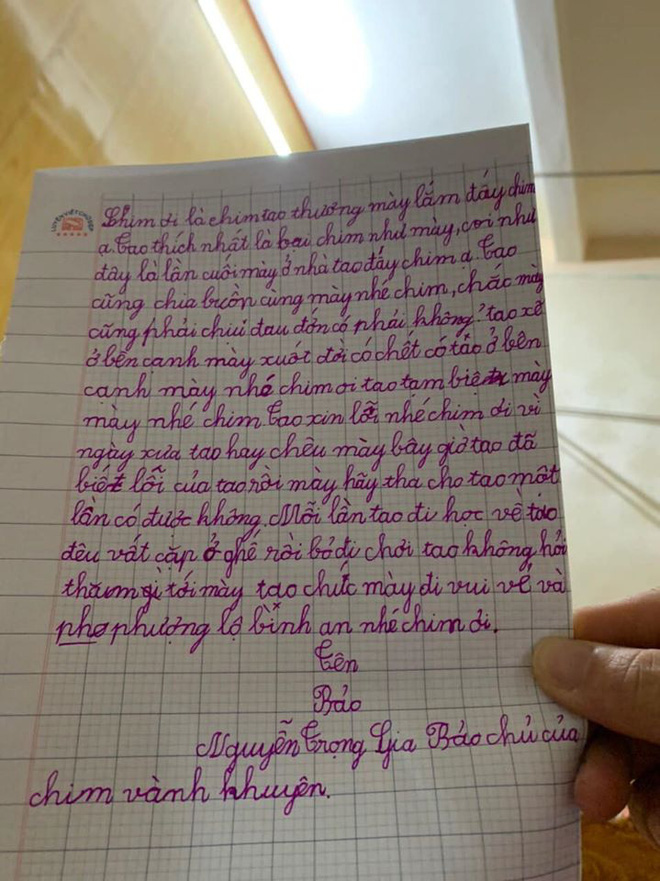 LUYỆN VIẾT CHỮ ĐẸP
Chim ơi là chim tao thương mày lắm đấy chim
ạ. Tao thích nhất là loại chim như mày, coi như
đây là lần cuối mày ở nhà tao đấy chim ạ. Tao
cũng chia buồn cùng mày nhé chim, chắc mày
cũng phải chịu đau đớn có phải không? tao xẽ
ở bên cạnh mày xuốt đời có chết có tao ở bên
cạnh mày nhé chim ơi tao tạm biệt mày
mày nhé chim. Tao xin lỗi nhé chim ơi vì
ngày xưa tao hay chêu mày bây giờ tao đã
biết lỗi của tao rồi mày hãy tha cho tao một
lần có được không. Mỗi lần tao đi học về tao
đều vất cặp ở ghế rồi bỏ đi chơi tao không hỏi
thăm gì tới mày tao chúc mày đi vui vẻ và
phơ phượng lộ bình an nhé chim ơi.
Tên
Bảo
Nguyễn Trọng Gia Bảo chủ của
chim vành khuyên.